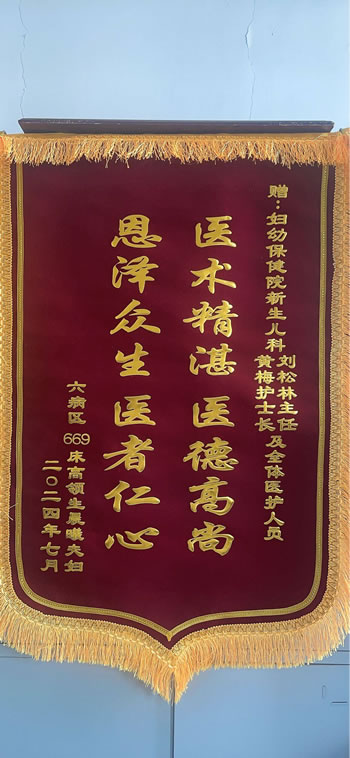 赠：妇幼保健院新生儿科刘松林主任黄梅护士长及全体医护人员
医术精湛 医德高尚
恩泽众生 医者仁心
六病区669床高领生晨曦夫妇
二〇二四年七月